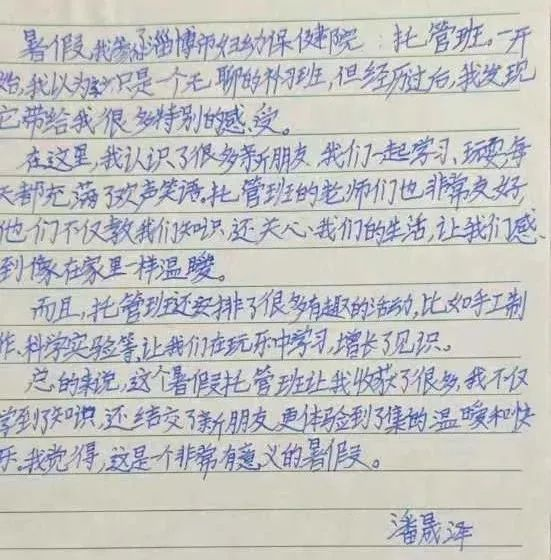 暑假,我参加淄博市妇幼保健院:托管班。一开
始,我以为这只是一个无聊的补习班,但经历过后,我发现
它带给我很多特别的感受。
在这里,我认识了很多新朋友,我们一起学习、玩耍,每
天都充满了欢声笑语。托管班的老师们也非常友好
他们不仅教我们知识,还关心我们的生活,让我们感
到像在家里一样温暖。
而且,托管班还安排了很多有趣的活动,比如手工制
作、科学实验等,让我们在玩乐中学习,增长了见识。
总的来说,这个暑假托管班让我收获了很多,我不仅
学到了知识,还结交了新朋友,更体验到了集的温暖和快
乐,我觉得,这是个非常有意义的暑假。
潘晟泽